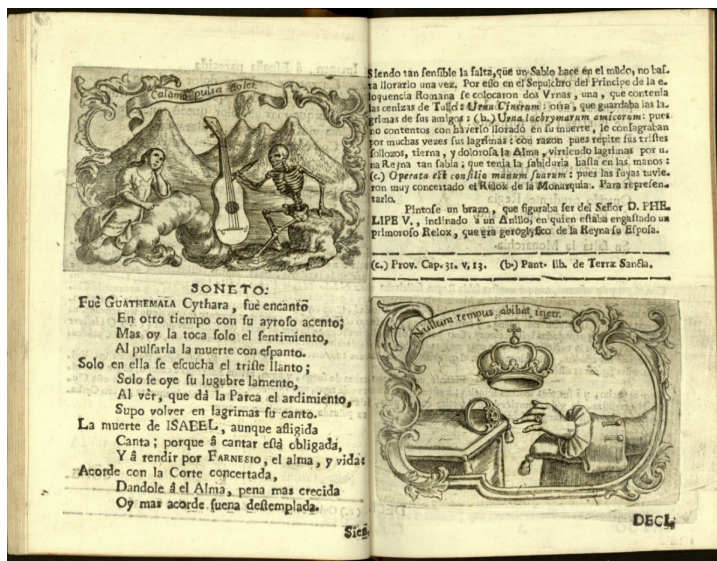 Calamo pulsa dolet.
SONETO:
Fuè GUATHEMALA Cythara, fuè encanto
En otro tiempo con su ayroso acento;
Mas oy la toca solo el sentimiento,
Al pulsarla la muerte con espanto.
Solo en ella se escucha el triste llanto;
Solo se oye su lugubre lamento,
Al vèr, que dà la Parca el ardimiento,
Supo volver en lagrimas su canto.
La muerte de ISABEL, aunque afligida
Canta; porque â cantar està obligada,
Y â rendir por FARNESIO, el alma, y vida:
Acorde con la Corte concertada,
Dandole â el Alma, pena mas crecida
Oy mas acorde suena destemplada.
Sien
SIendo tan sensible la falta, que un Sabio hace en el mũdo, no bas-
ta llorarlo una vez. Por esso en el Sepulchro del Principe de la e-
loquencia Romana se colocaron dos Vrnas, una, que contenia
las cenizas de Tulio: Urna Cinerum: otra, que guardaba las la-
grimas de sus amigos: (b.) Urna lachrymarum amicorum: pues
no contentos con haverlo llorado en su muerte, le consagraban
por muchas vezes sus lagrimas: con razon pues repite sus tristes
sollozos, tierna, y dolorosa la Alma, virtiendo lagrimas por u-
na Reyna tan sabia; que tenia la sabiduria hasta en las manos:
(c.) Operata est consilio manum suarum: pues las suyas tuvie-
ron muy concertado el Relox de la Monarquia. Para represen-
tarlo.
Pintose un brazo, que figuraba ser del Señor D. PHE-
LIPE V., inclinado à un Anillo, en quien estaba engastado un
primoroso Relox, que era geroglyfico de la Reyna su Esposa.
(c.) Prov. Cap. 31. v, 13. (b.) Pant. lib. de Terræ Sancta.
Nullum tempus abibat iners.
DECI-